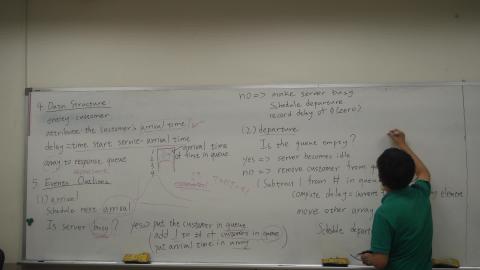 4. Data Structure
entity: customer
attribute the customer's arrival time
delay = time start service - arrival time
array to response queue
arrival time
of # in queue
5. Events Outlines
(1) arrival
Schedule next arrival
Is server busy?
yes => put the customer in queue
(add 1 to # of customers in queue
put arrival time in array)
no => make server busy
Schedule departure
record delay of 0 (zero)
(2) departure
Is the queue empty?
yes => server becomes idle
no => remove customer from
(Subtract 1 from # in
compute delay = current
element
move other array
Schedule depart